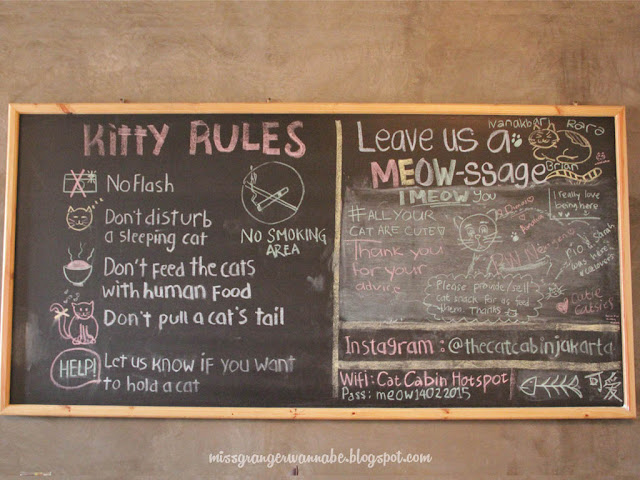 Kitty RULES
No Flash
Don't disturb
a sleeping cat
Don't feed the cats
with human food
Don't pull a cat's tail
HELP!
Let us know if you want
to hold a cat
NO SMOKING
AREA
Leave us a
MEOW-ssage
ivanakbar
Rara
Brian
I MEOW you
#ALL YOUR
CAT ARE CUTE
Thank you
for your
advice
I really love
being here
Please provide/sell
cat snack for us feed
them. Thanks
Sarah
was here
Cutie
Catsies
Instagram : @thecatcabinjakarta
Wifi : Cat Cabin Hotspot
Pass : meow14022015
可愛
missgrangerwannabe.blogspot.com